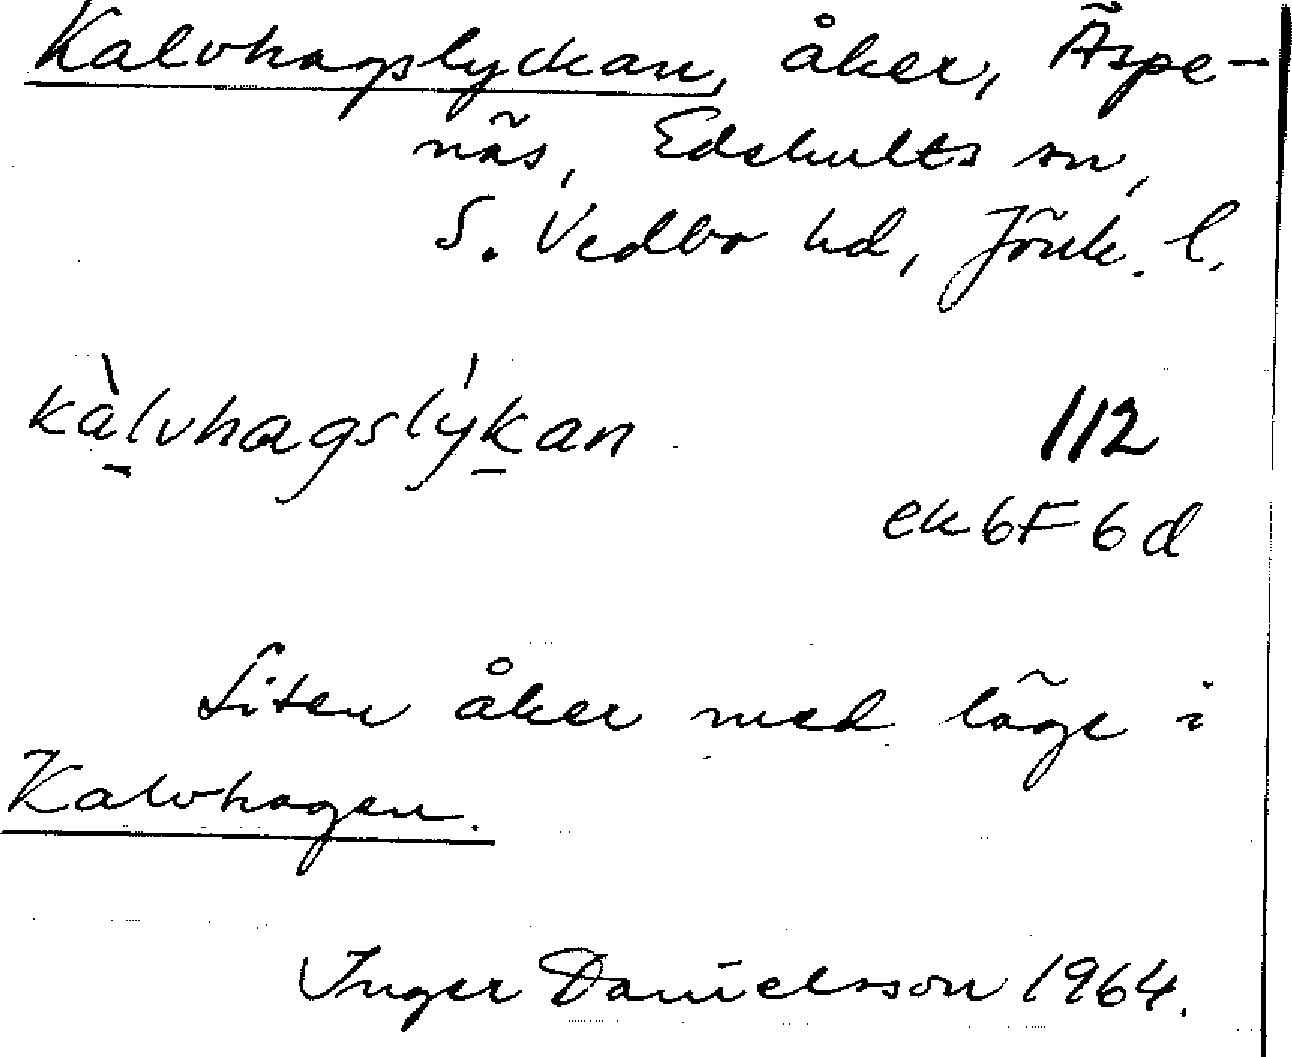 Kalvhagslyckan, åker, Äspe-
näs, Edshults sn,
S. Vedbo hd, Jönk. l.
kàlvhagslýkan
112
ek 6F 6d
Liten åker med läge i
Kalvhagen.
Inger Danielsson 1964.